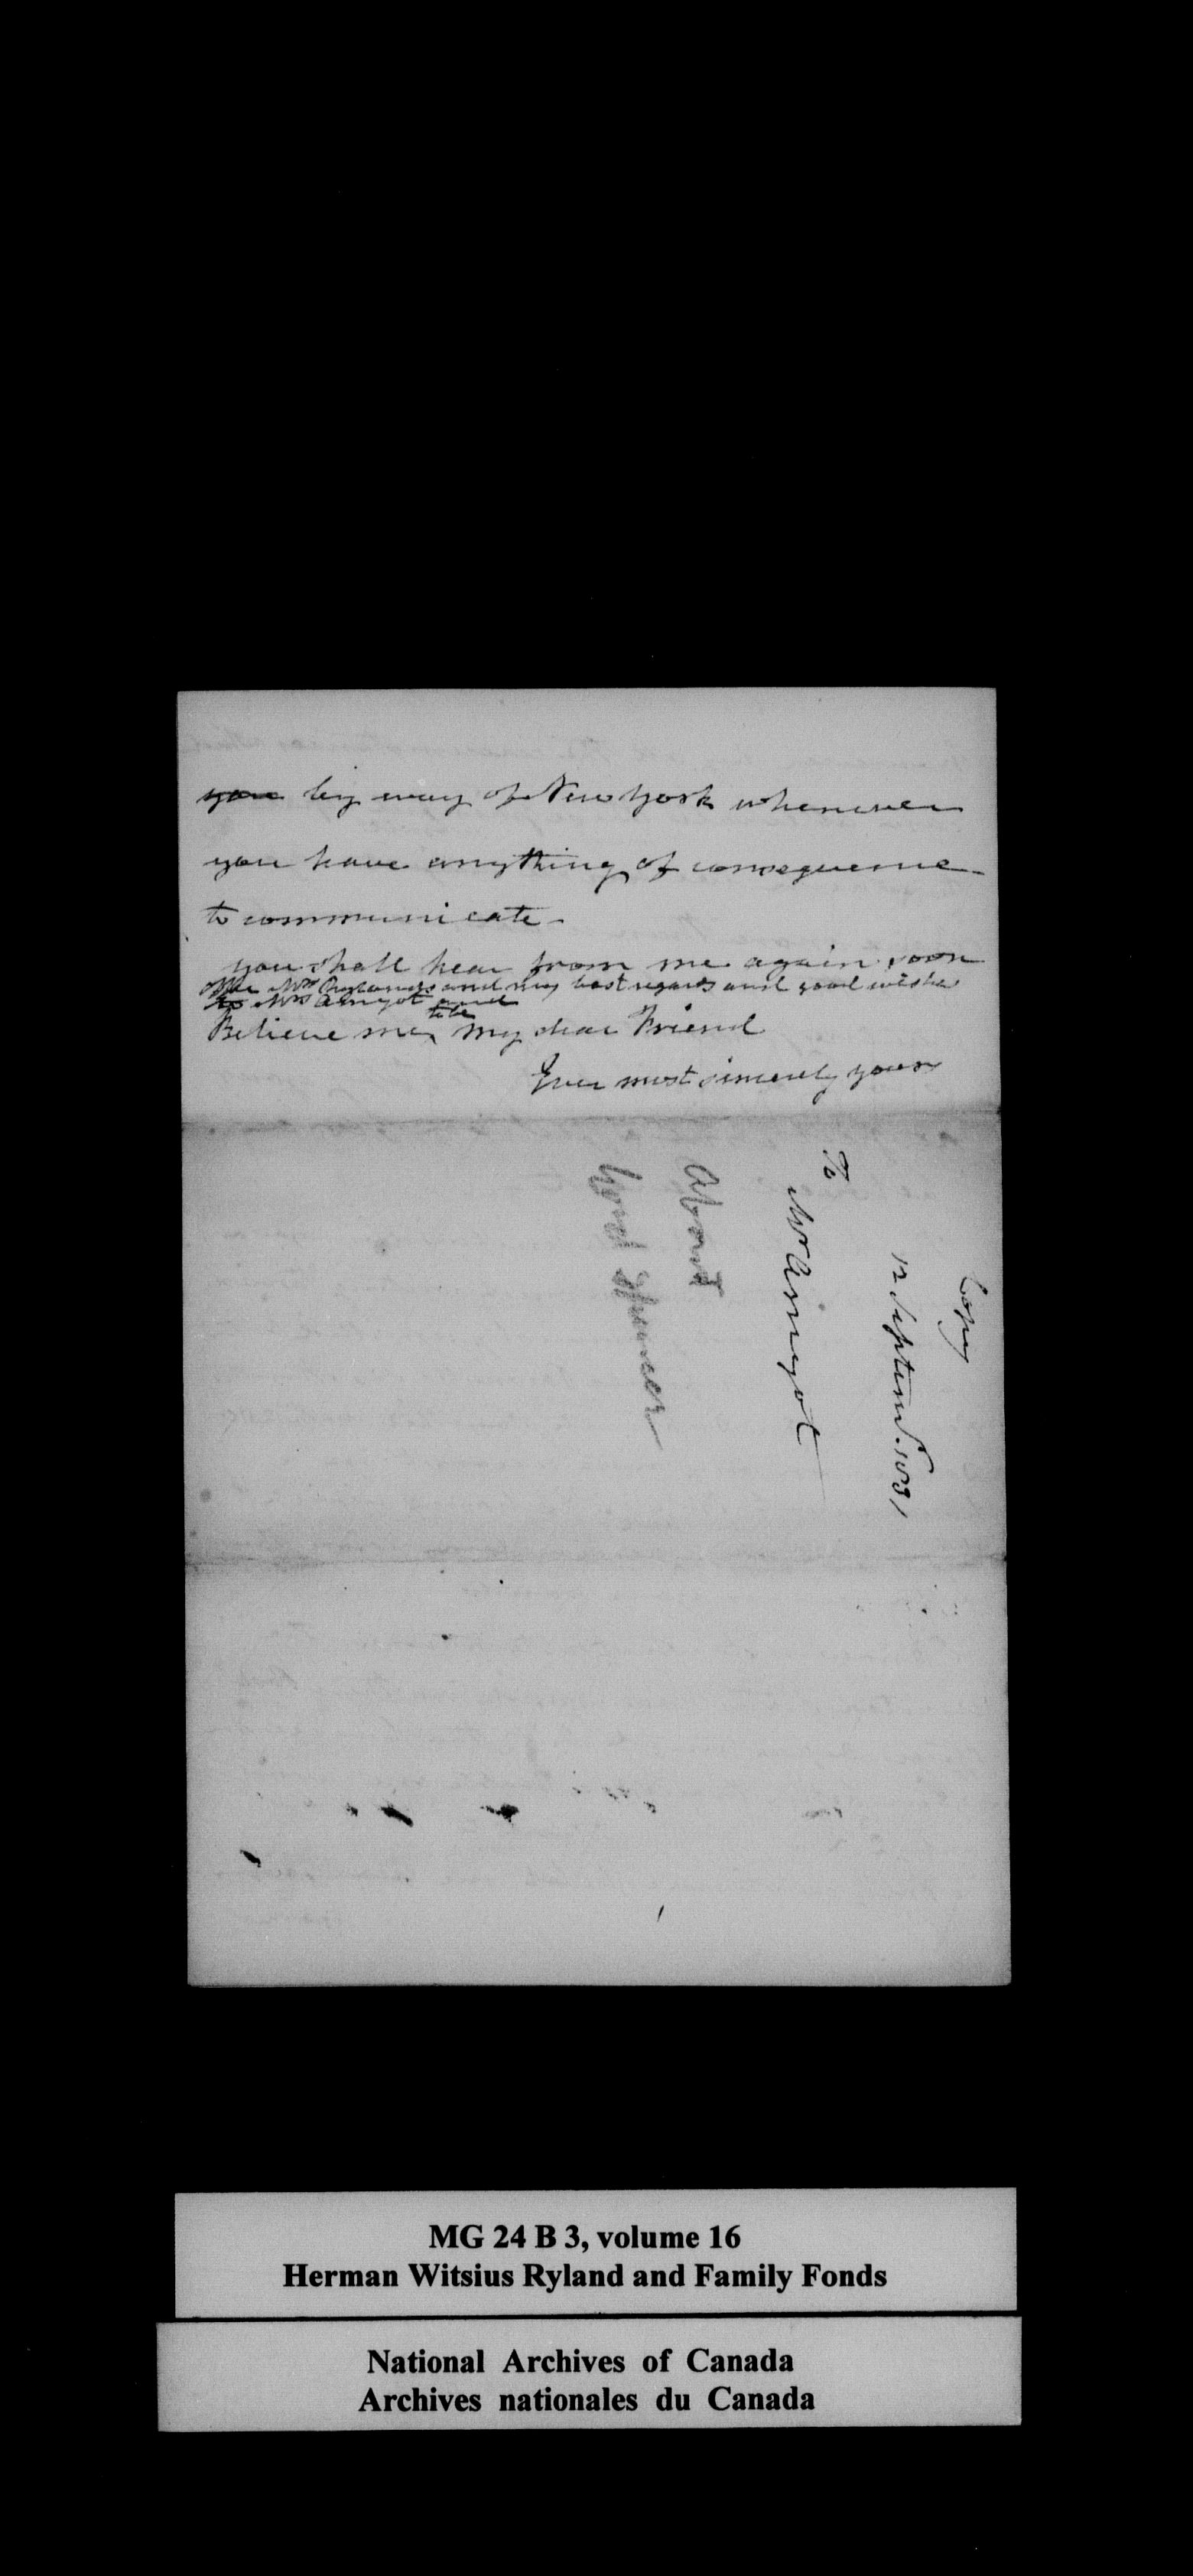 you by way of New York whenever
you have anything of consequence
to communicate.
you shall hear from me again soon
Mrs Rylands and my best regards and good wishes
to Mrs Amyot and
to be
Believe me, my dear Friend
Ever most sincerely yours
Copy
12 Septemr. 1831
To
Mr Amyot
About
Lord Spencer
MG 24 B 3, volume 16
Herman Witsius Ryland and Family Fonds
National Archives of Canada
Archives nationales du Canada